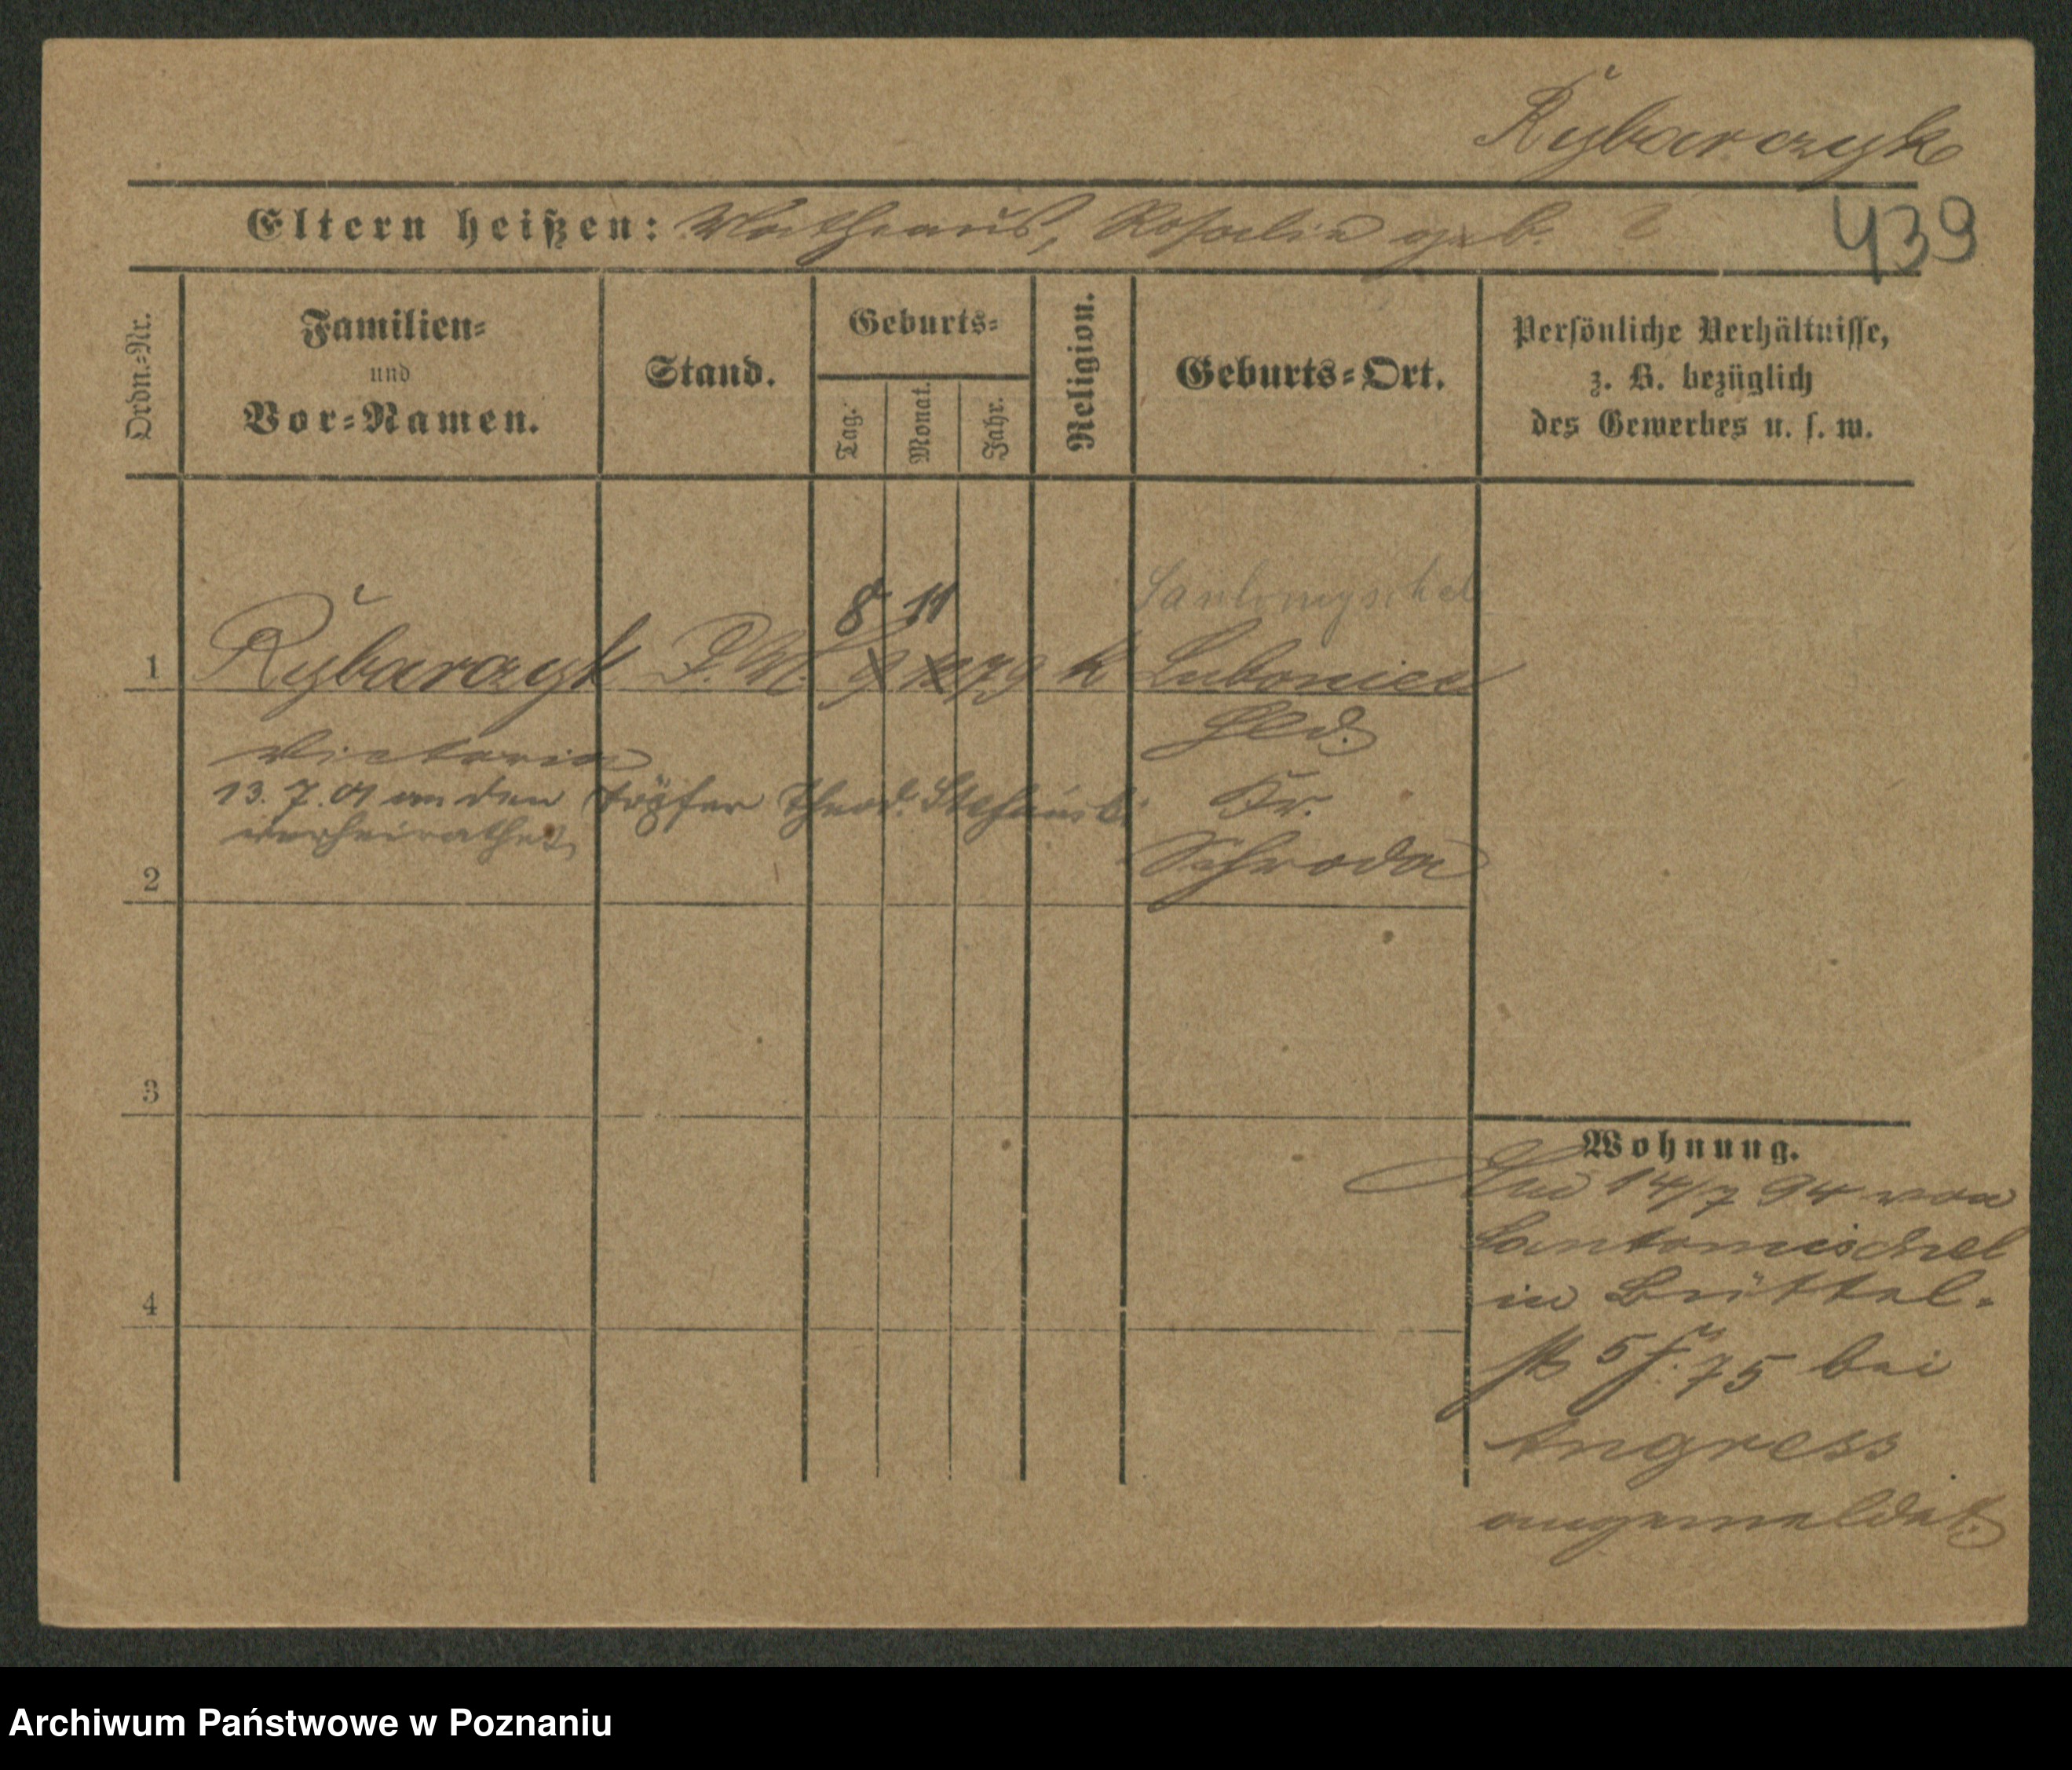 Rybarczyk
Eltern heißen: Matheaus, Rosalie geb. ?
439
Ordn.=Nr.
Familien=
und
Vor=Namen.
Stand.
Geburts=
Tag.
Monat.
Jahr.
Religion.
Geburts=Ort.
Persönliche Verhältnisse,
z. B. bezüglich
des Gewerbes u. s. w.
8 11
1 Rybarczyk D.M. 9 79 k Luboniec
Victoria
Hld.
13.7.01 an den Töpfer Theod. Stefanski
verheirathet
Kr.
Schroda
2
3
4
Wohnung.
14/7 94 von
Santomischel
in Büttel-
str 5 f. 75 bei
Angress
angemeldet.
Archiwum Państwowe w Poznaniu